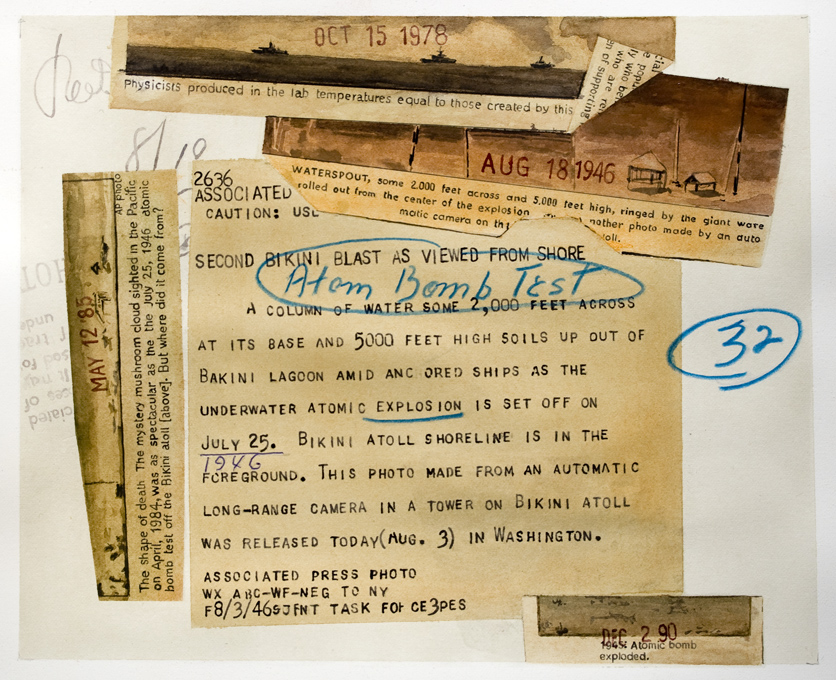 OCT 15 1978
Physicists produced in the lab temperatures equal to those created by this
AUG 18 1946
WATERSPOUT, some 2,000 feet across and 5,000 feet high, ringed by the giant wave
rolled out from the center of the explosion nother photo made by an auto
matic camera on th oll.
8/10
2636
ASSOCIATED
CAUTION: USE
SECOND BIKINI BLAST AS VIEWED FROM SHORE
Atom Bomb Test
A COLUMN OF WATER SOME 2,000 FEET ACROSS
AT ITS BASE AND 5000 FEET HIGH SOILS UP OUT OF
BAKINI LAGOON AMID ANC ORED SHIPS AS THE
UNDERWATER ATOMIC EXPLOSION IS SET OFF ON
JULY 25. BIKINI ATOLL SHORELINE IS IN THE
1946
FOREGROUND. THIS PHOTO MADE FROM AN AUTOMATIC
LONG-RANGE CAMERA IN A TOWER ON BIKINI ATOLL
WAS RELEASED TODAY(AUG. 3) IN WASHINGTON.
ASSOCIATED PRESS PHOTO
WX ABC-WF-NEG TO NY
F8/3/46SJFNT TASK FOR CE3PES
32
MAY 12 '85
AP photo
The shape of death. The mystery mushroom cloud sighted in the Pacific
on April, 1984, was as spectacular as the the July 25, 1946 atomic
bomb test off the Bikini atoll [above]. But where did it come from?
DEC 2 90
1945: Atomic bomb
exploded.